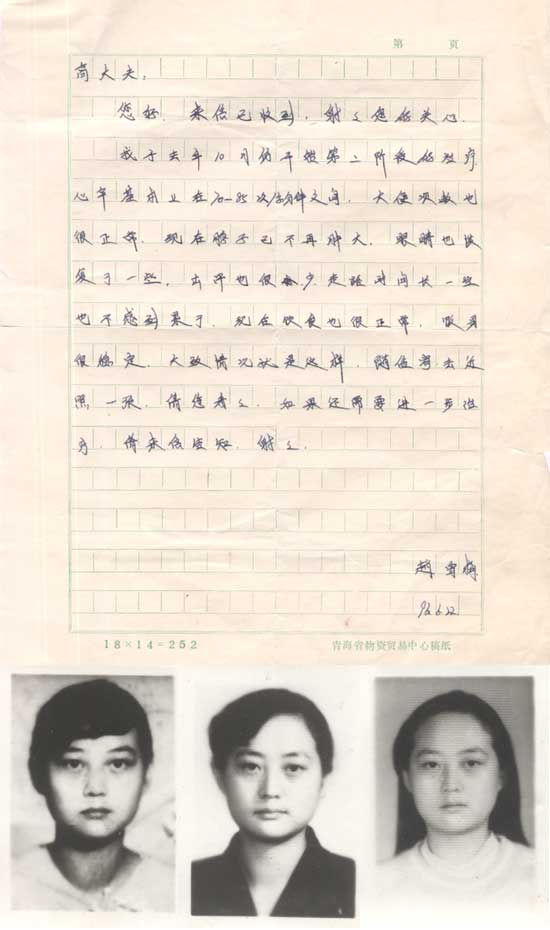 第 页
大夫：
您好．来信已收到，谢々您的关心．
我于去年10月份开始第二阶段的治疗
心率基本上在70-85次/分钟之间．大便次数也
很正常．现在脖子已不再肿大．眼睛也恢
复了一些，出汗也很少，走路时间长一些
也不感到累了．现在饮食也很正常，
很稳定．大致情况就是这样，随信寄去近
照一张，请您看々．如果还需要进一步治
疗，请来信告知．谢々．
赵雪梅
96.6.22
18×14=252 青海省物资贸易中心稿纸